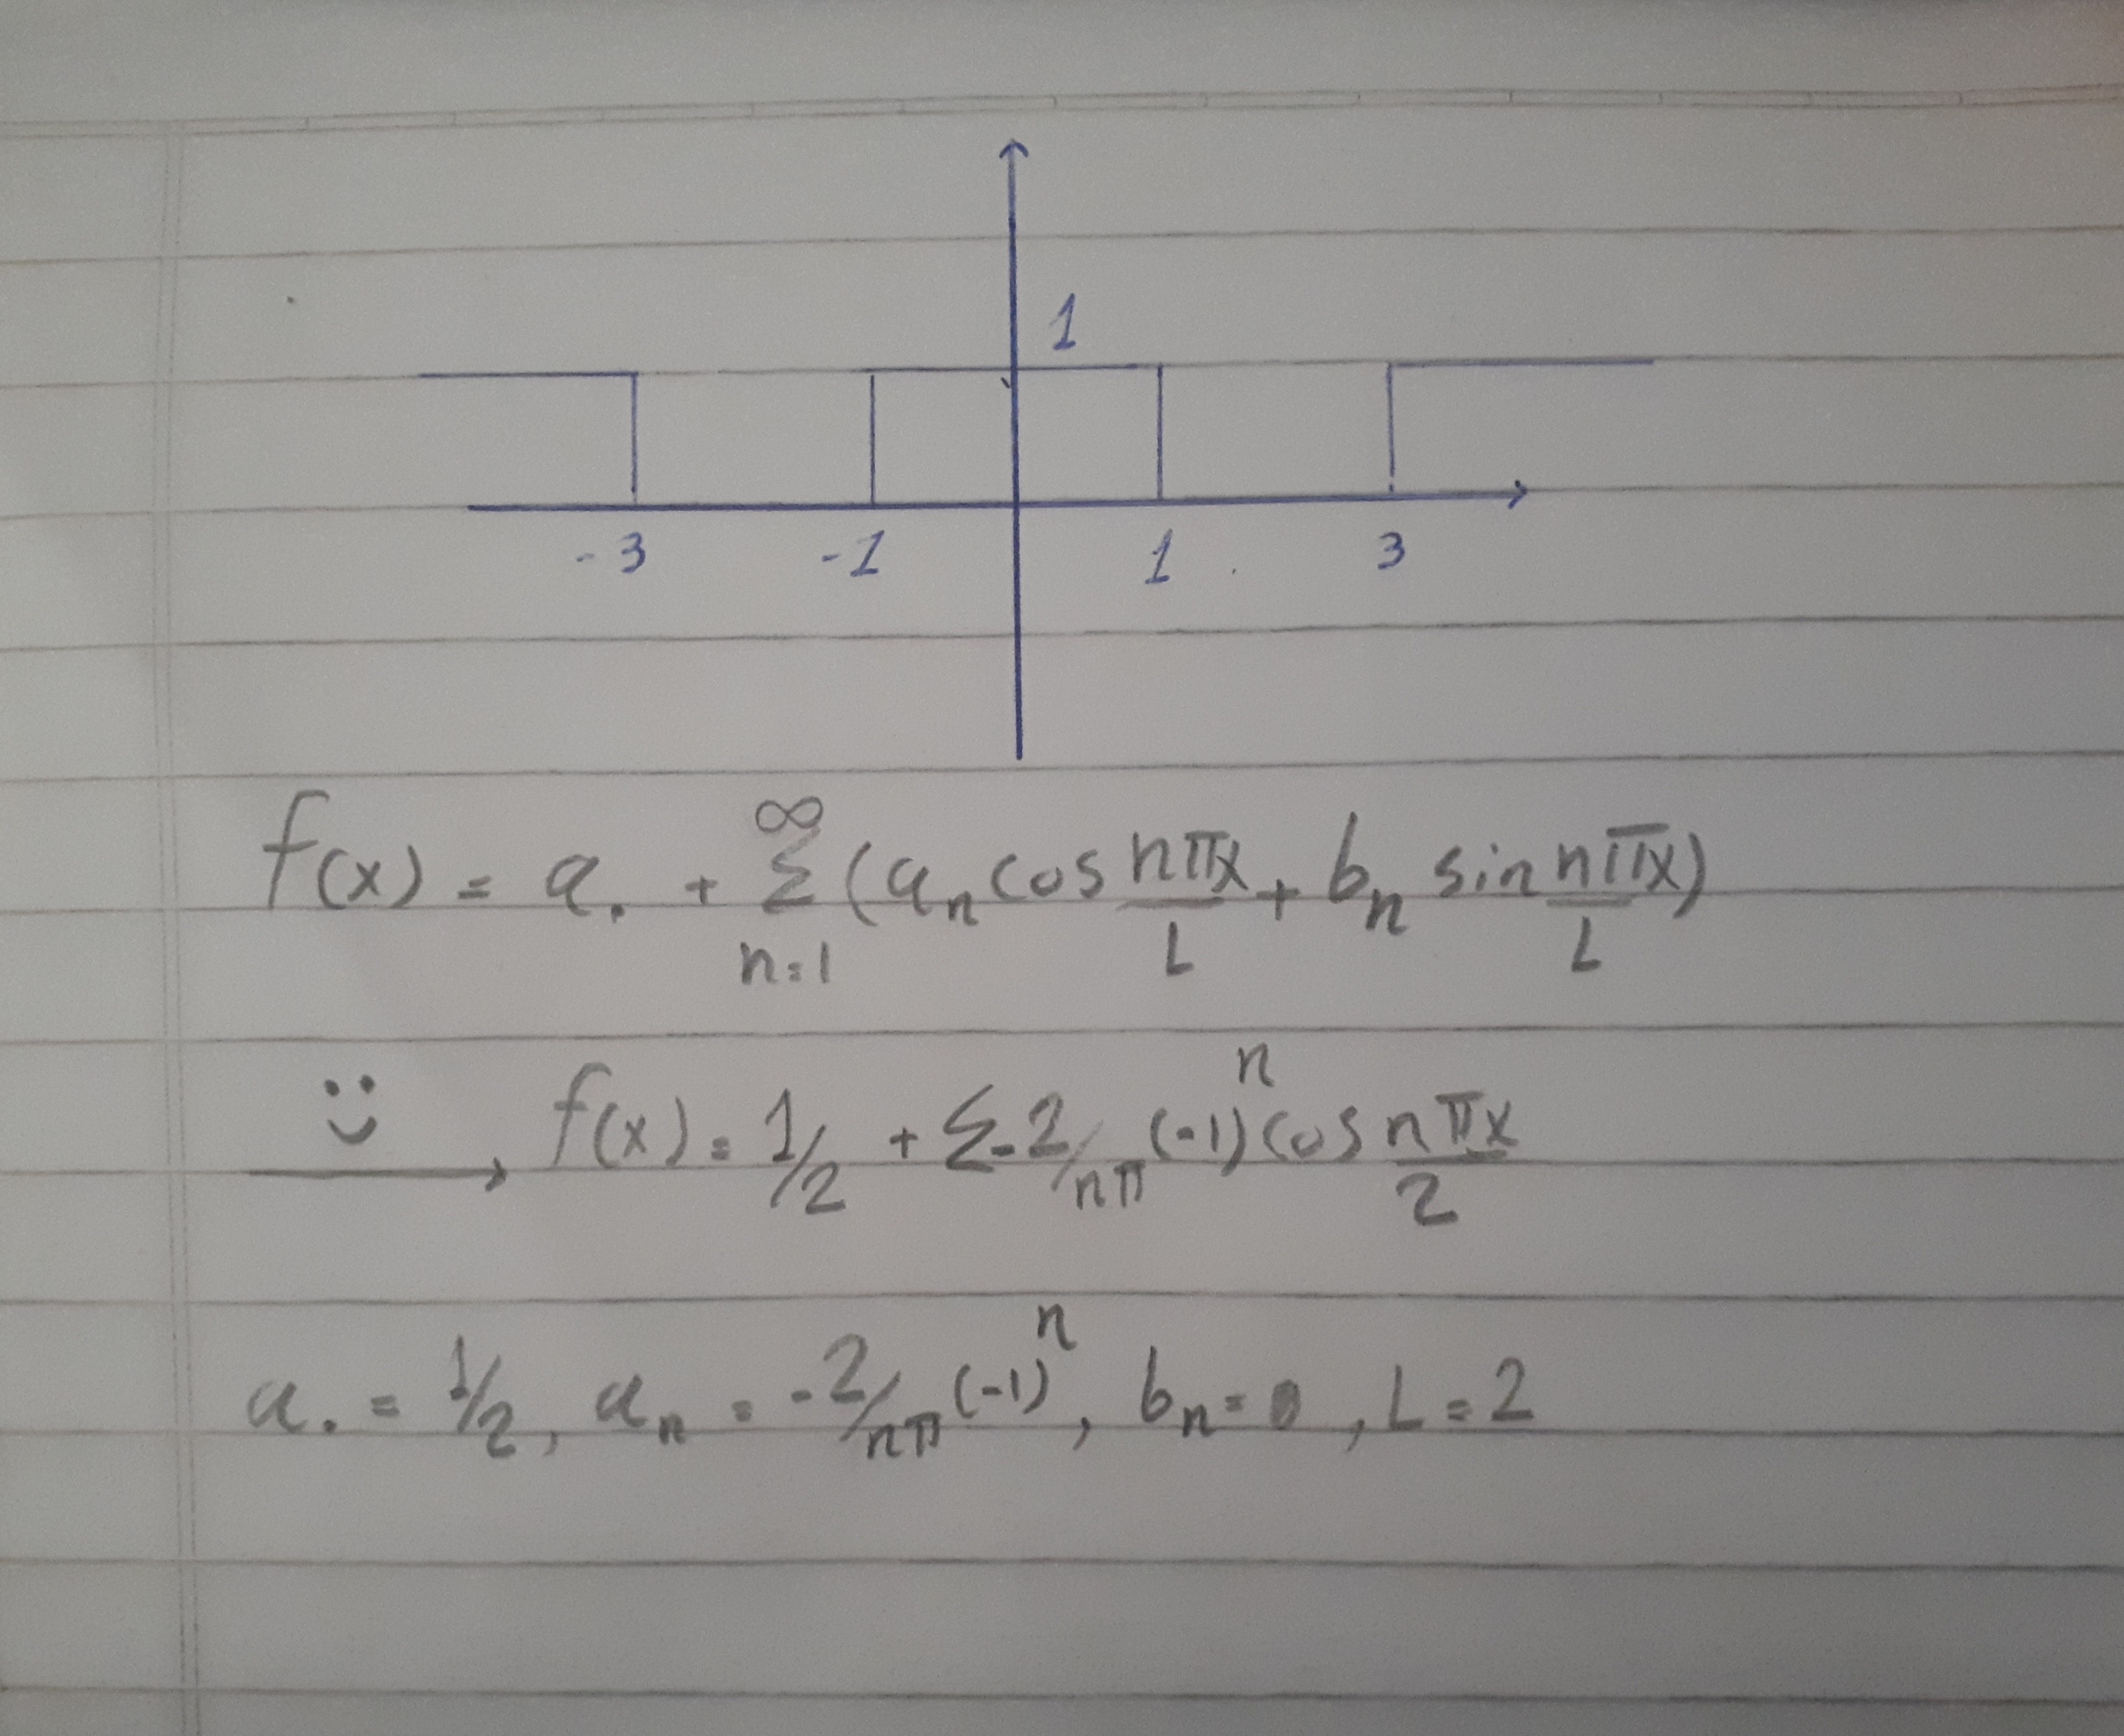 1
-3 -1 1 3
∞
f(x) = a. + Σ (aₙ cos nπx/L + bₙ sin nπx/L)
n=1
f(x) = 1/2 + Σ -2/nπ (-1)ⁿ cos nπx/2
a. = 1/2, aₙ = -2/nπ (-1)ⁿ, bₙ = 0, L = 2